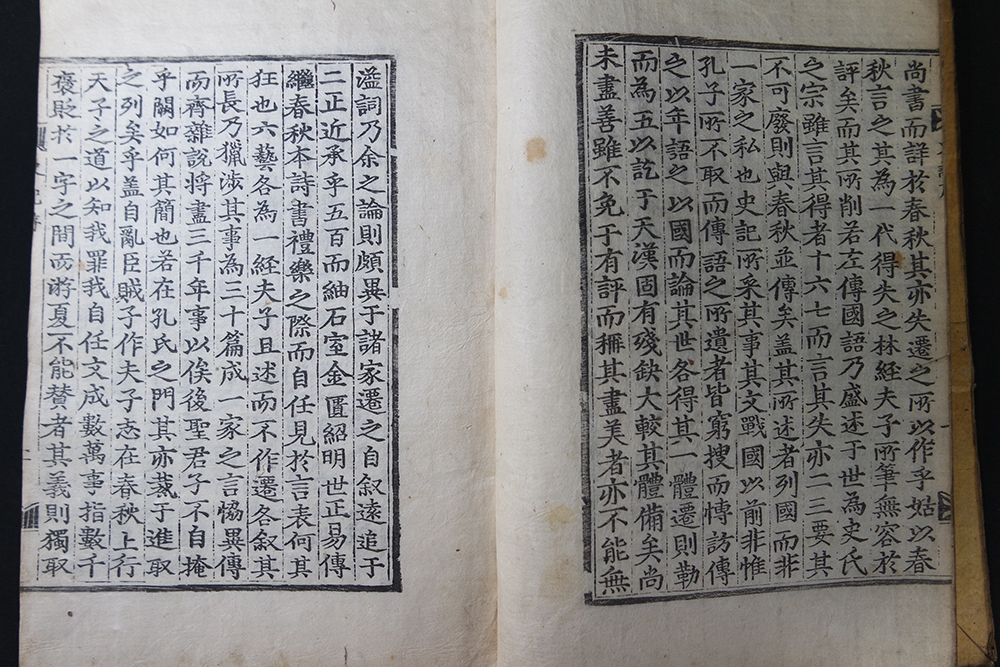 尚書而詳於春秋其亦失遷之所以作乎姑以春
秋言之其為一代得失之林経夫子所筆無容於
評矣而其所削若左傳國語乃盛述于世為史氏
之宗雖言其得者十六七而言其失亦二三要其
不可廢則與春秋並傳矣盖其所述者列國而非
一家之私也史記所采其事其文戰國以前非惟
孔子所不取而傳語之所遺者皆窮搜而愽訪傳
之以年語之以國而論其世各得其一體遷則勒
而為五以訖于天漢固有殘缺大較其體備矣尚
未盡善雖不免于有評而稱其盡美者亦不能無
溢詞乃余之論則頗異于諸家遷之自叙遠追于
二正近承乎五百而紬石室金匱紹明世正易傳
繼春秋本詩書禮樂之際而自任見於言表何其
狂也六藝各為一経夫子且述而不作遷各叙其
所長乃獵渉其事為三十篇成一家之言恊異傳
而齊雜說将盡三千年事以俟後聖君子不自掩
乎闕如何其簡也若在孔氏之門其亦裁于進取
之列矣乎盖自亂臣賊子作夫子志在春秋上行
天子之道以知我罪我自任文成數萬事指數千
褒貶求一字之間而游夏不能賛者其義則獨取